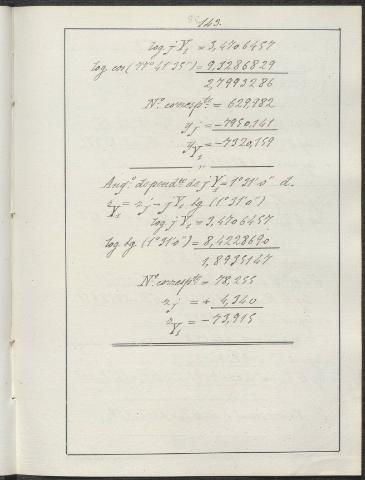 143.
log. j Y₁ = 3,4706457
log. cos (77° 41' 35") = 9,3286829
2,7993286
N.º corresp.te = 629,982
yj = -7950,141
yY₁ = -7320,159
Ang.º depend.te de j Y₁ = 1° 31' 0" d.
zY₁ = zj - j Y₁ tg (1° 31' 0")
log. j Y₁ = 3,4706457
log. tg. (1° 31' 0") = 8,4228690
1,8935147
N.º corresp.te = 78,255
zj = + 4,340
zY₁ = -73,915